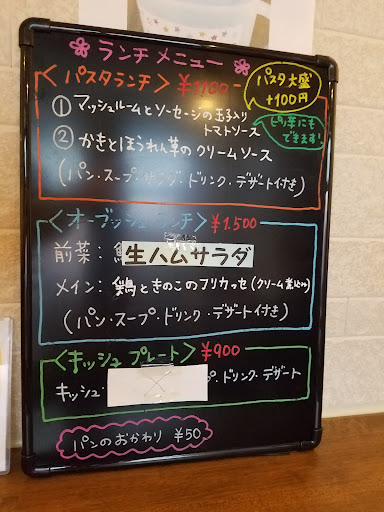 ランチメニュー
<パスタランチ> ¥1100-
パスタ大盛
+100円
① マッシュルームとソーセージの玉子入り
トマトソース
ピリ辛にも
できます!
② かきとほうれん草のクリームソース
(パン・スープ・サラダ・ドリンク・デザート付き)
<オーブッシュランチ> ¥1.500
前菜: 生ハムサラダ
メイン: 鶏ときのこのフリカッセ(クリーム煮込み)
(パン・スープ・ドリンク・デザート付き)
<キッシュプレート> ¥900
キッシュ・ プ・ドリンク・デザート
パンのおかわり ¥50